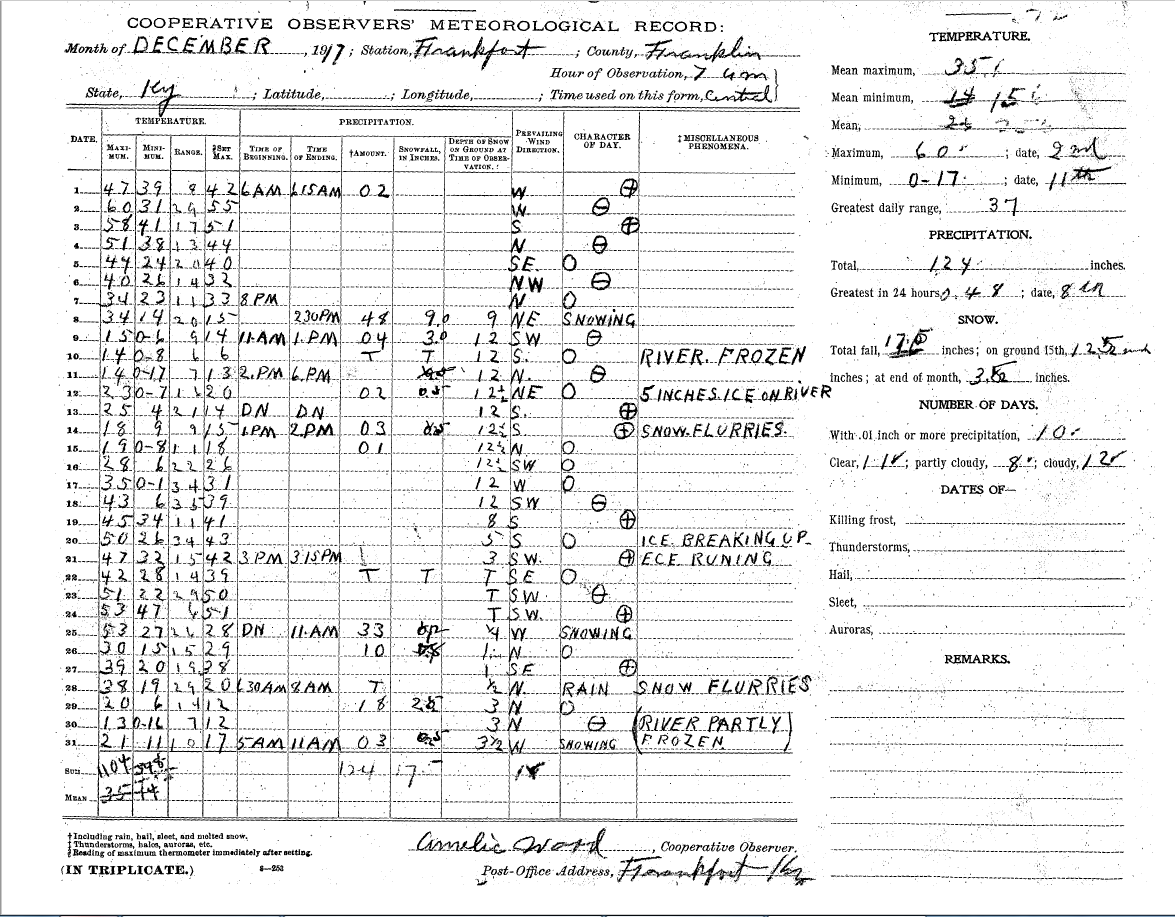 COOPERATIVE OBSERVERS' METEOROLOGICAL RECORD:
Month of DECEMBER, 1917; Station, Frankfort; County, Franklin
Hour of Observation, 7 am
State, Ky; Latitude, ; Longitude, ; Time used on this form, Central
DATE. TEMPERATURE. PRECIPITATION. PREVAILING WIND DIRECTION. CHARACTER OF DAY. ‡MISCELLANEOUS PHENOMENA.
MAXIMUM. MINIMUM. RANGE. §SET MAX. TIME OF BEGINNING. TIME OF ENDING. †AMOUNT. SNOWFALL, IN INCHES. DEPTH OF SNOW ON GROUND AT TIME OF OBSERVATION.
1 47 39 8 42 6AM 6 15AM 02 W
2 60 31 29 55 W
3 58 41 17 51 S
4 51 38 13 44 N
5 44 24 20 40 SE O
6 40 26 14 32 NW
7 34 23 11 33 8PM N O
8 34 14 20 15 230PM 48 9.0 9 NE SNOWING
9 15 0-6 9 14 11.AM 1.PM 04 3.0 12 SW
10 14 0-8 6 6 T T 12 S. O RIVER. FROZEN
11 14 0-17 7 13 2.PM 6.PM 12 N.
12 23 0-7 20 02 0.5 12½ NE O 5 INCHES ICE ON RIVER
13 25 4 21 14 DN DN 12 S.
14 18 9 9 15 1.PM 2.PM 03 12½ S SNOW FLURRIES.
15 19 0-8 11 18 01 12½ N O
16 28 6 22 26 12½ SW O
17 35 0-1 34 31 12 W O
18 43 6 35 39 12 SW
19 45 34 11 41 8 S
20 50 26 34 43 5 S O ICE BREAKING UP
21 47 32 15 42 3PM 315PM 3 SW. ECE RUNING
22 42 28 14 39 T T T SE O
23 51 22 29 50 T SW
24 53 47 6 51 T SW.
25 53 27 26 28 DN 11.AM 33 ¼ W SNOWING
26 30 15 15 29 10 1 N O
27 39 20 19 38 1 SE
28 38 19 29 20 630AM 8AM T ½ N. RAIN SNOW FLURRIES
29 20 6 14 12 18 3 N O
30 13 0-16 7 12 3 N (RIVER PARTLY
31 21 11 10 17 5AM 11AM 03 3½ W SNOWING FROZEN)
SUM 1104 124 17.5
MEAN 35 14
†Including rain, hail, sleet, and melted snow.
‡Thunderstorms, halos, auroras, etc.
§Reading of maximum thermometer immediately after setting.
(IN TRIPLICATE.) 8—253
Amelie Wood, Cooperative Observer.
Post-Office Address, Frankfort Ky
TEMPERATURE.
Mean maximum, 35.1
Mean minimum, 14 15
Mean,
Maximum, 60; date, 2nd
Minimum, 0-17; date, 11th
Greatest daily range, 37
PRECIPITATION.
Total, 124 inches.
Greatest in 24 hours, 0.48; date, 8
SNOW.
Total fall, 17.5 inches; on ground 15th, 12.5
inches; at end of month, 3.5 inches.
NUMBER OF DAYS.
With .01 inch or more precipitation, 10
Clear, 11; partly cloudy, 8; cloudy, 12
DATES OF—
Killing frost,
Thunderstorms,
Hail,
Sleet,
Auroras,
REMARKS.